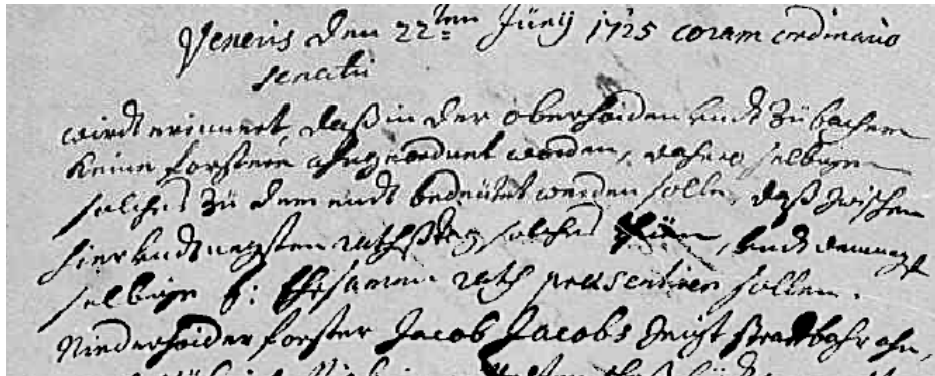 Veneris den 22ten Junij 1725 coram ordinario
senatu
wird erinnert, daß in der oberheiden undt zu bachem
keine forstere ahngeordnet worden, dahero selbigen
solches zu dem endt bedeutet werden solle, daß zwischen
hier undt negsten rathstag solches thuen, undt demnegst
selbige E: Ehrsamen rath praesentiren sollen.
Niederheider forster Jacob Jacobs zeigt straffbahr ahn,